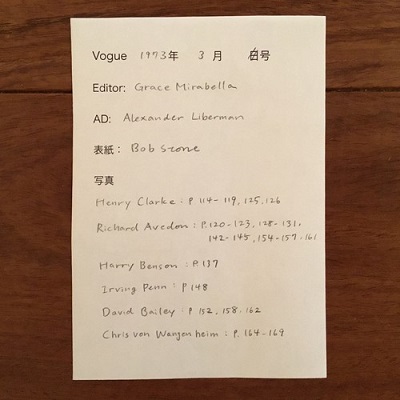 Vogue 1973年 3月 号
Editor: Grace Mirabella
AD: Alexander Liberman
表紙: Bob Stone
写真
Henry Clarke: P 114-119, 125, 126
Richard Avedon: P.120-123, 128-131,
142-145, 154-157-161
Harry Benson: P.137
Irving Penn: P 148
David Bailey: P 152, 158, 162
Chris von Wangenheim: P. 164-169